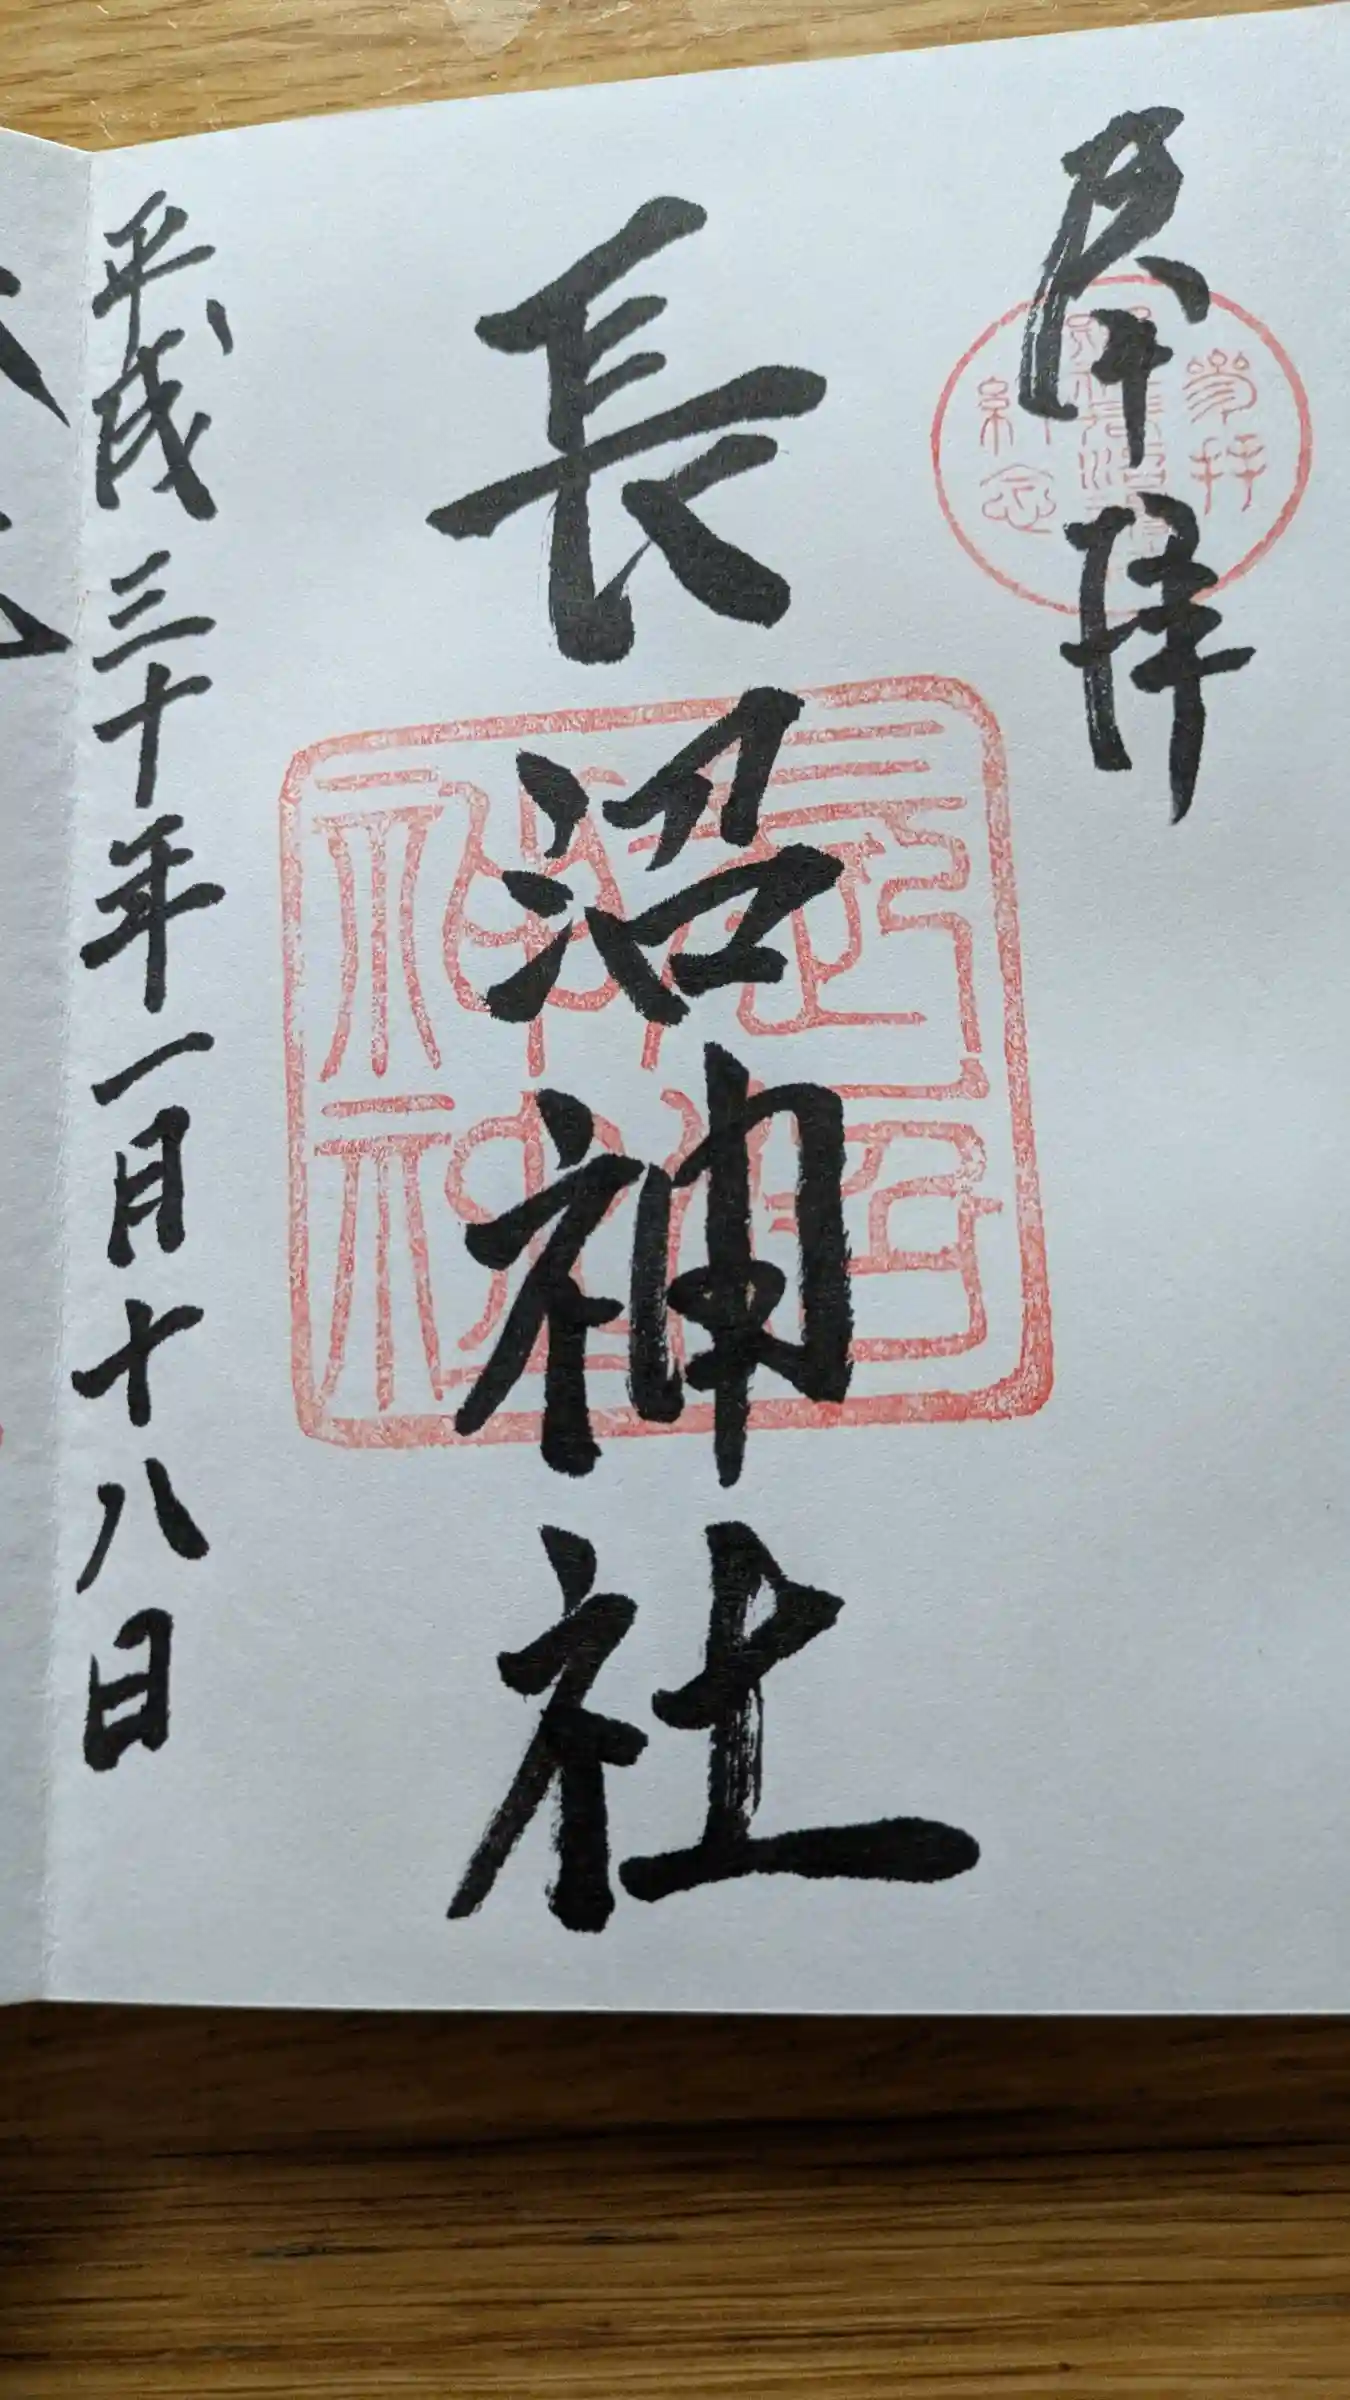 奉拝
参拝
記念
長沼神社
長沼神社
平成三十年一月十八日